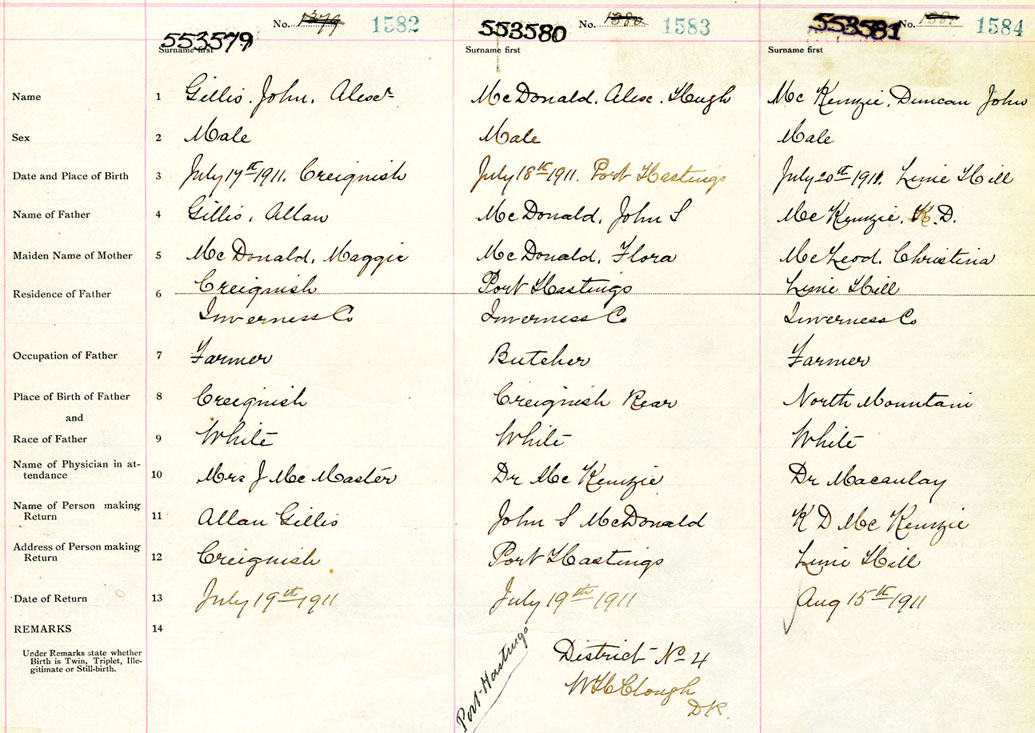 No. 1379 1582 No. 1380 1583 No. 1381 1584
553579 553580 553581
Surname first Surname first Surname first
Name 1 Gillis, John, Alexr McDonald, Alex. Hugh Mc Kenzie, Duncan John
Sex 2 Male Male Male
Date and Place of Birth 3 July 17th 1911. Creignish July 18th 1911. Port Hastings July 20th 1911. Lime Hill
Name of Father 4 Gillis, Allan McDonald, John S McKenzie, K.D.
Maiden Name of Mother 5 McDonald, Maggie McDonald, Flora McLeod, Christina
Residence of Father 6 Creignish Port Hastings Lime Hill
Inverness Co Inverness Co Inverness Co
Occupation of Father 7 Farmer Butcher Farmer
Place of Birth of Father 8 Creignish Creignish Rear North Mountain
and
Race of Father 9 White White White
Name of Physician in at-
tendance 10 Mrs J McMaster Dr McKenzie Dr Macaulay
Name of Person making
Return 11 Allan Gillis John S McDonald K D McKenzie
Address of Person making
Return 12 Creignish Port Hastings Lime Hill
Date of Return 13 July 19th 1911 July 19th 1911 Aug 15th 1911
REMARKS 14
Under Remarks state whether
Birth is Twin, Triplet, Ille-
gitimate or Still-birth.
Port Hastings
District No 4
W H Clough
D R.